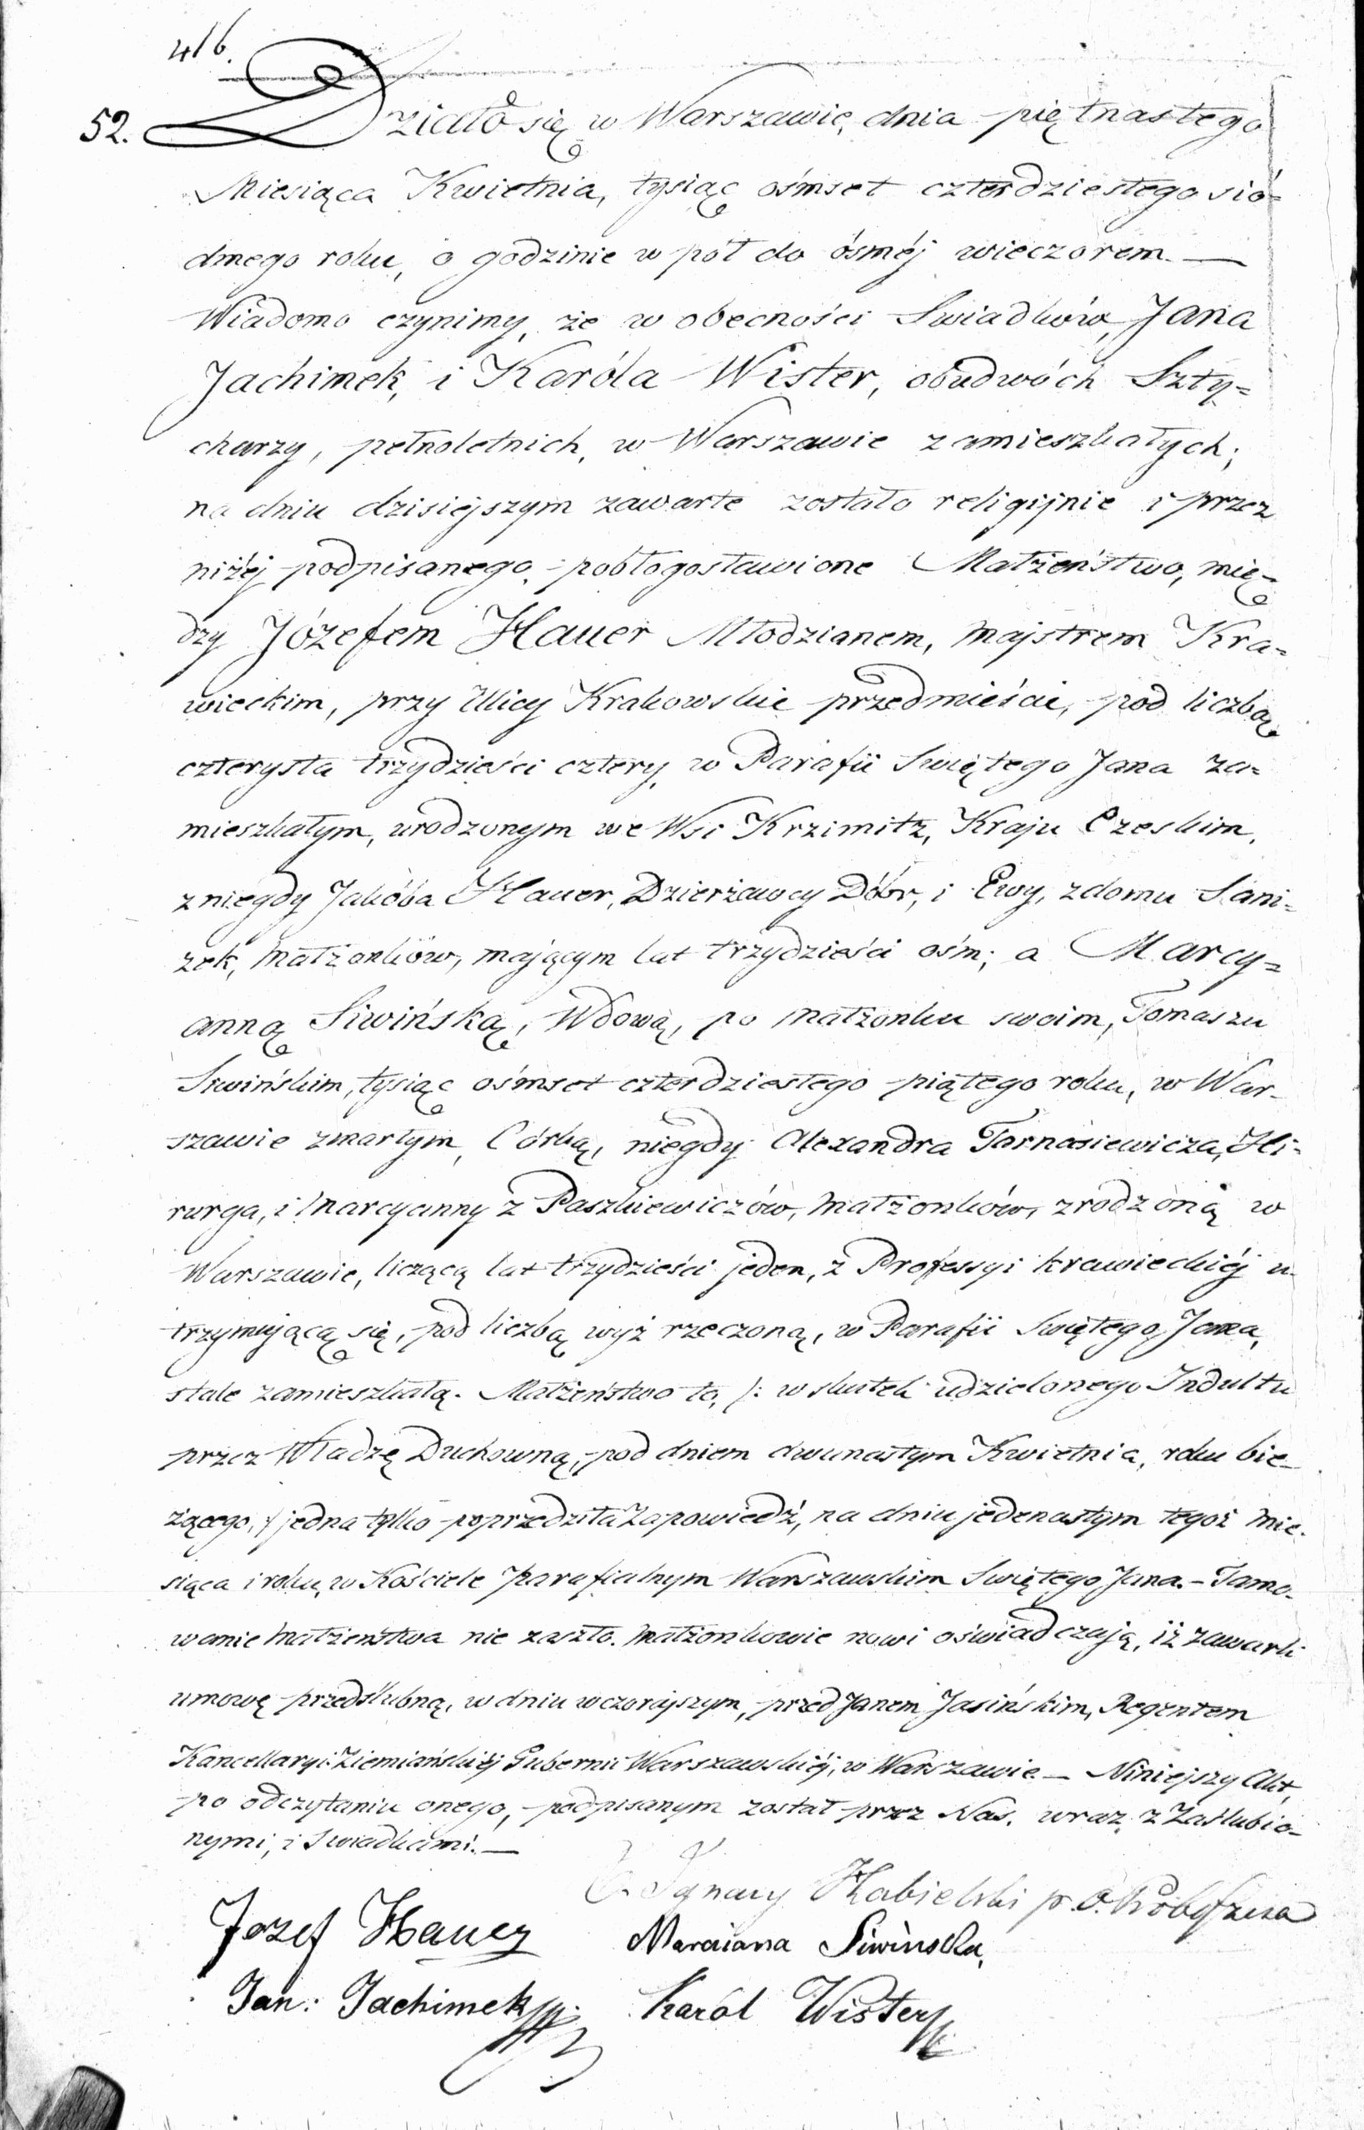 416.
52. Działo się w Warszawie, dnia piętnastego
Miesiąca Kwietnia, tysiąc ośmset czterdziestego sió=
dmego roku, o godzinie w pół do ósméj wieczorem. —
Wiadomo czynimy, że w obecności Swiadków, Jana
Jachimek, i Karóla Wister, obudwóch Szty=
charzy, pełnoletnich, w Warszawie zamieszkałych;
na dniu dzisiejszym zawarte zostało religijnie i przez
niżéj podpisanego, pobłogosławione Małżeństwo, mię=
dzy Józefem Hauer Młodzianem, Majstrem Kra=
wieckim, przy Ulicy Krakowskie przedmieście, pod liczbą
czterysta trzydzieści cztery, w Parafii Swiętego Jana za=
mieszkałym, urodzonym we Wsi Krzimitz, Kraju Czeskim,
z niegdy Jakóba Hauer, Dzierżawcy Dóbr, i Ewy, z domu Sani=
zek, Małżonków, mającym lat trzydzieści ośm; a Marcy=
anną Siwińską, Wdową, po Małżonku swoim, Tomaszu
Siwińskim, tysiąc ośmset czterdziestego piątego roku, w War=
szawie zmarłym, Córką, niegdy Alexandra Tarnasiewicza, Hi=
rurga, i Marcyanny z Paszkiewiczów, Małżonków, zrodzoną w
Warszawie, liczącą lat trzydzieści jeden, z Professyi krawieckiéj u=
trzymującą się, pod liczbą wyż rzeczoną, w Parafii Swiętego Jana,
stale zamieszkałą. Małżeństwo to, /: w skutek udzielonego Indultu
przez Władzę Duchowną, pod dniem dwunastym Kwietnia, roku bie=
żącego, :/ jedna tylko poprzedziła Zapowiedź, na dniu jedenastym tegoż Mie=
siąca i roku, w Kościele Parafialnym Warszawskim Swiętego Jana. – Tamo=
wanie Małżeństwa nie zaszło. Małżonkowie nowi oświadczają, iż zawarli
umowę przedślubną, w dniu wczorajszym, przed Janem Jasińskim, Regentem
Kancellaryi Ziemiańskiéj Gubernii Warszawskiéj, w Warszawie. — Niniejszy Akt,
po odczytaniu onego, podpisanym został przez Nas, wraz z Zaślubio=
nymi, i Swiadkami. —
X. Ignacy Kabielski p. o. Proboszcza
Jozef Hauer Marcianna Siwinska,
Jan: Jachimek Karól Wister